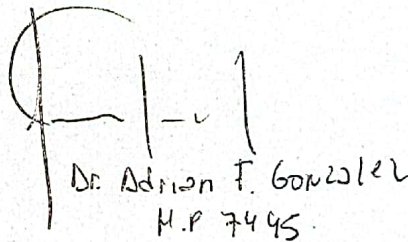 Dr. Adrian F. Gonzalez
M.P 7495.